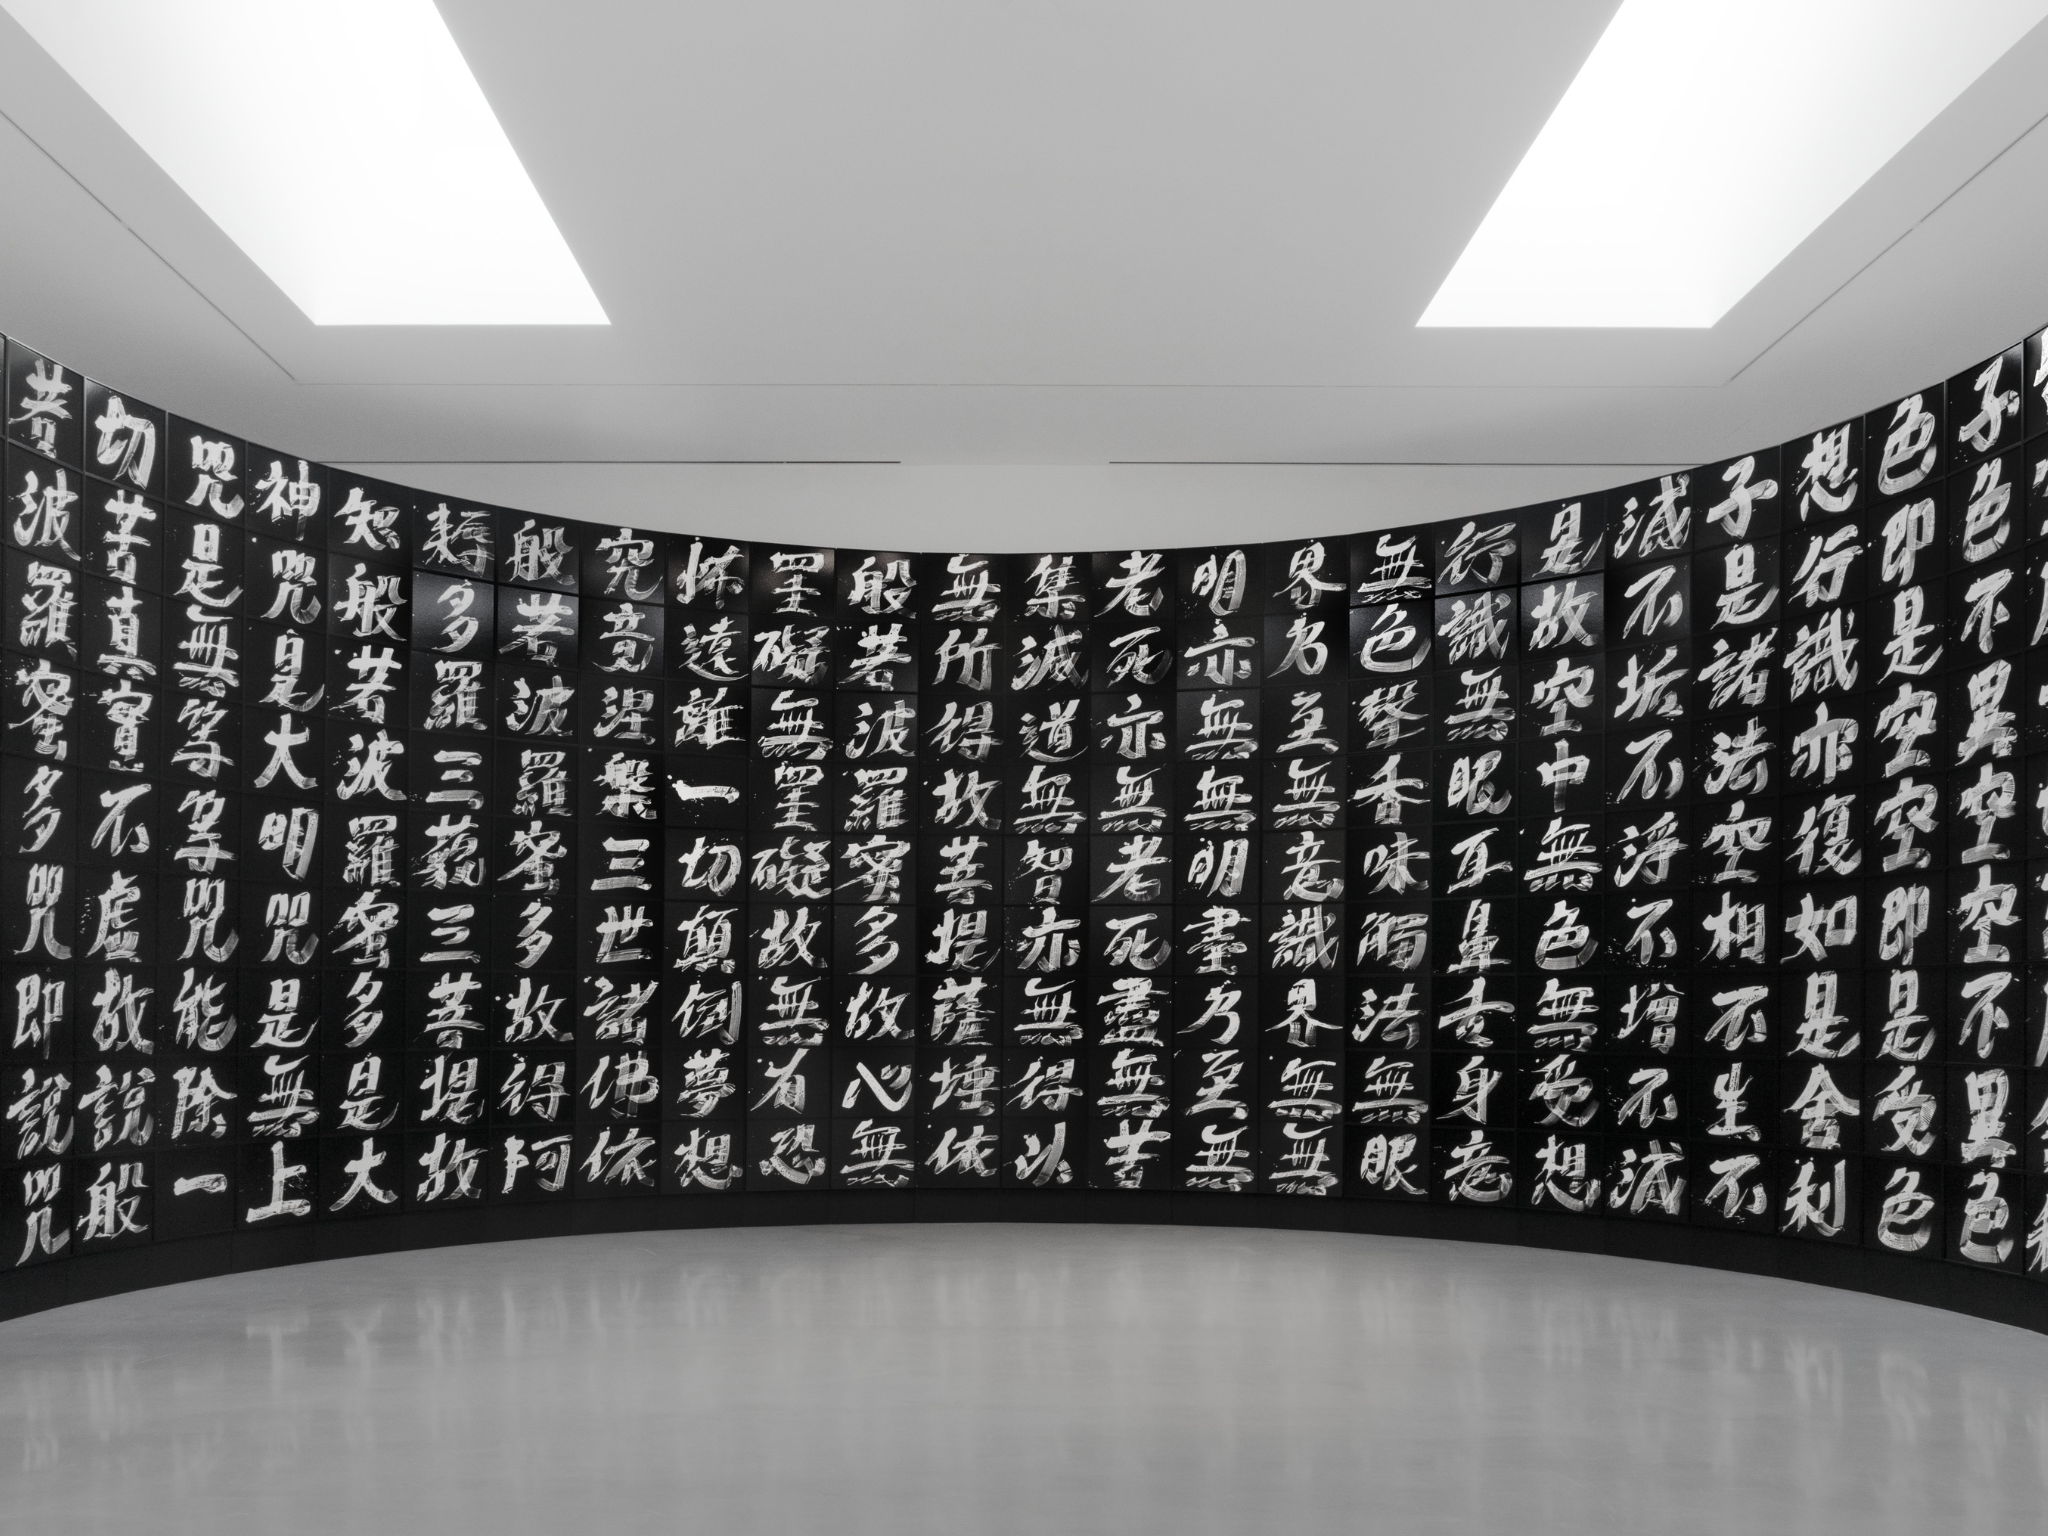 子色不異空空不異色
色即是空空即是受色
想行識亦復如是舍利
子是諸法空相不生不
滅不垢不淨不增不滅
是故空中無色無受想
行識無眼耳鼻舌身意
無色聲香味觸法無眼
界乃至無意識界無無
明亦無無明盡乃至無
老死亦無老死盡無苦
集滅道無智亦無得以
無所得故菩提薩埵依
般若波羅蜜多故心無
罣礙無罣礙故無有恐
怖遠離一切顛倒夢想
究竟涅槃三世諸佛依
般若波羅蜜多故得阿
耨多羅三藐三菩提故
知般若波羅蜜多是大
神咒是大明咒是無上
咒是無等等咒能除一
切苦真實不虛故說般
若波羅蜜多咒即說咒